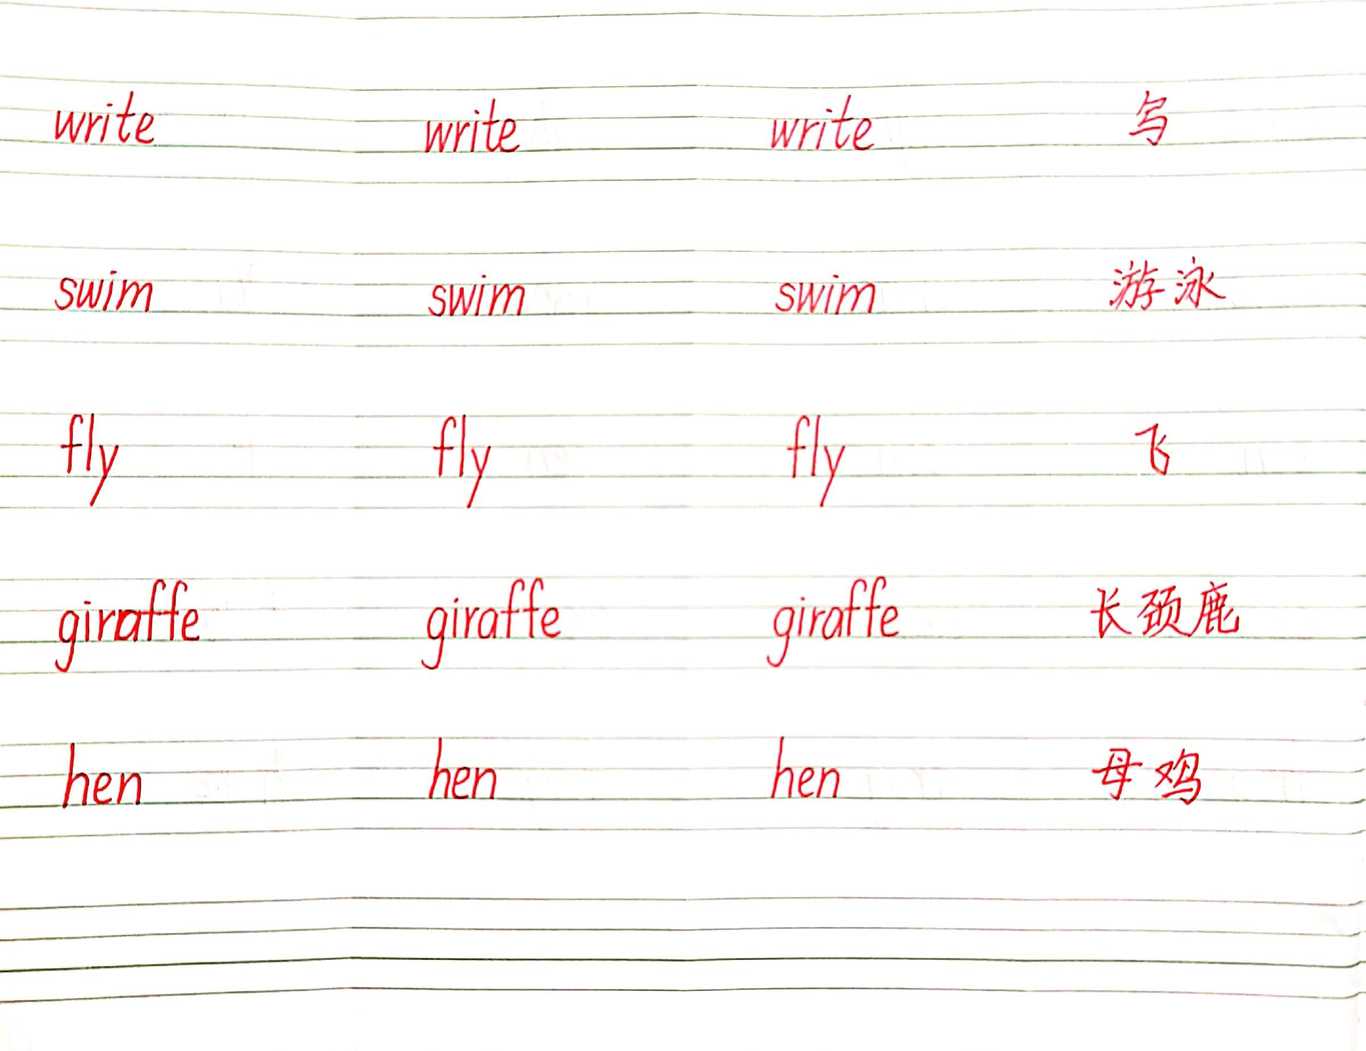 write write write 写
swim swim swim 游泳
fly fly fly 飞
giraffe giraffe giraffe 长颈鹿
hen hen hen 母鸡